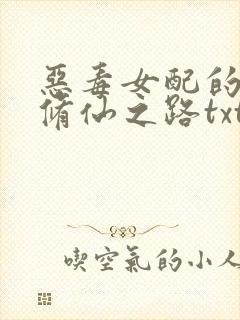 惡毒女配的
脩仙之路txt
喫空氣的小人